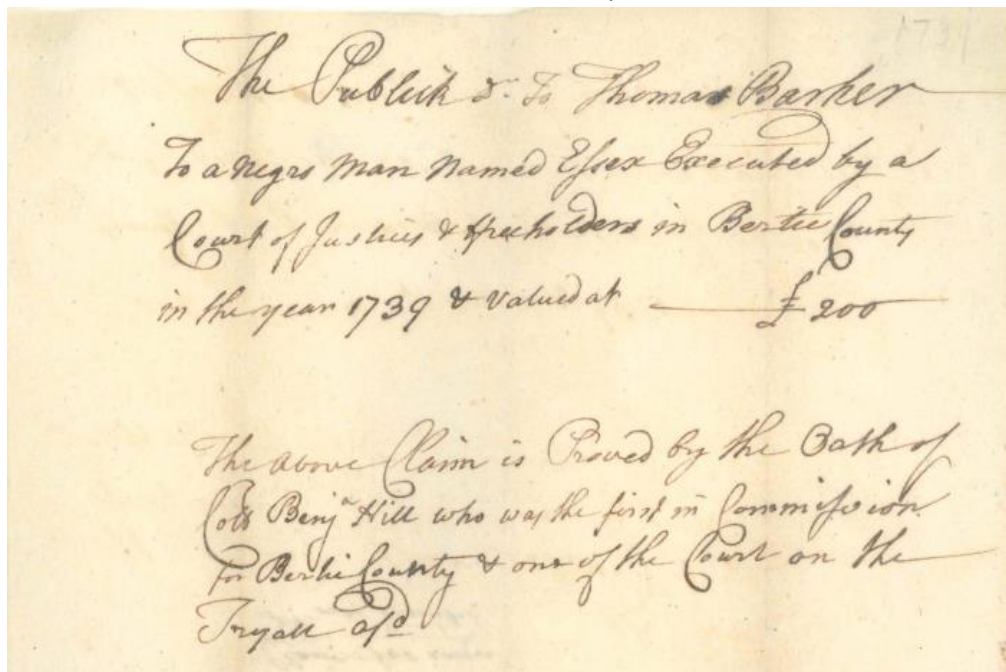 1739
The Publick Dr. To Thomas Barker
To a Negro Man Named Essex Executed by a
Court of Justices & freeholders in Bertie County
in the year 1739 & valued at £ 200
The above Claim is Proved by the Oath of
Coll Benja Hill who was the first in Commission
for Bertie County & one of the Court on the
Tryall afd